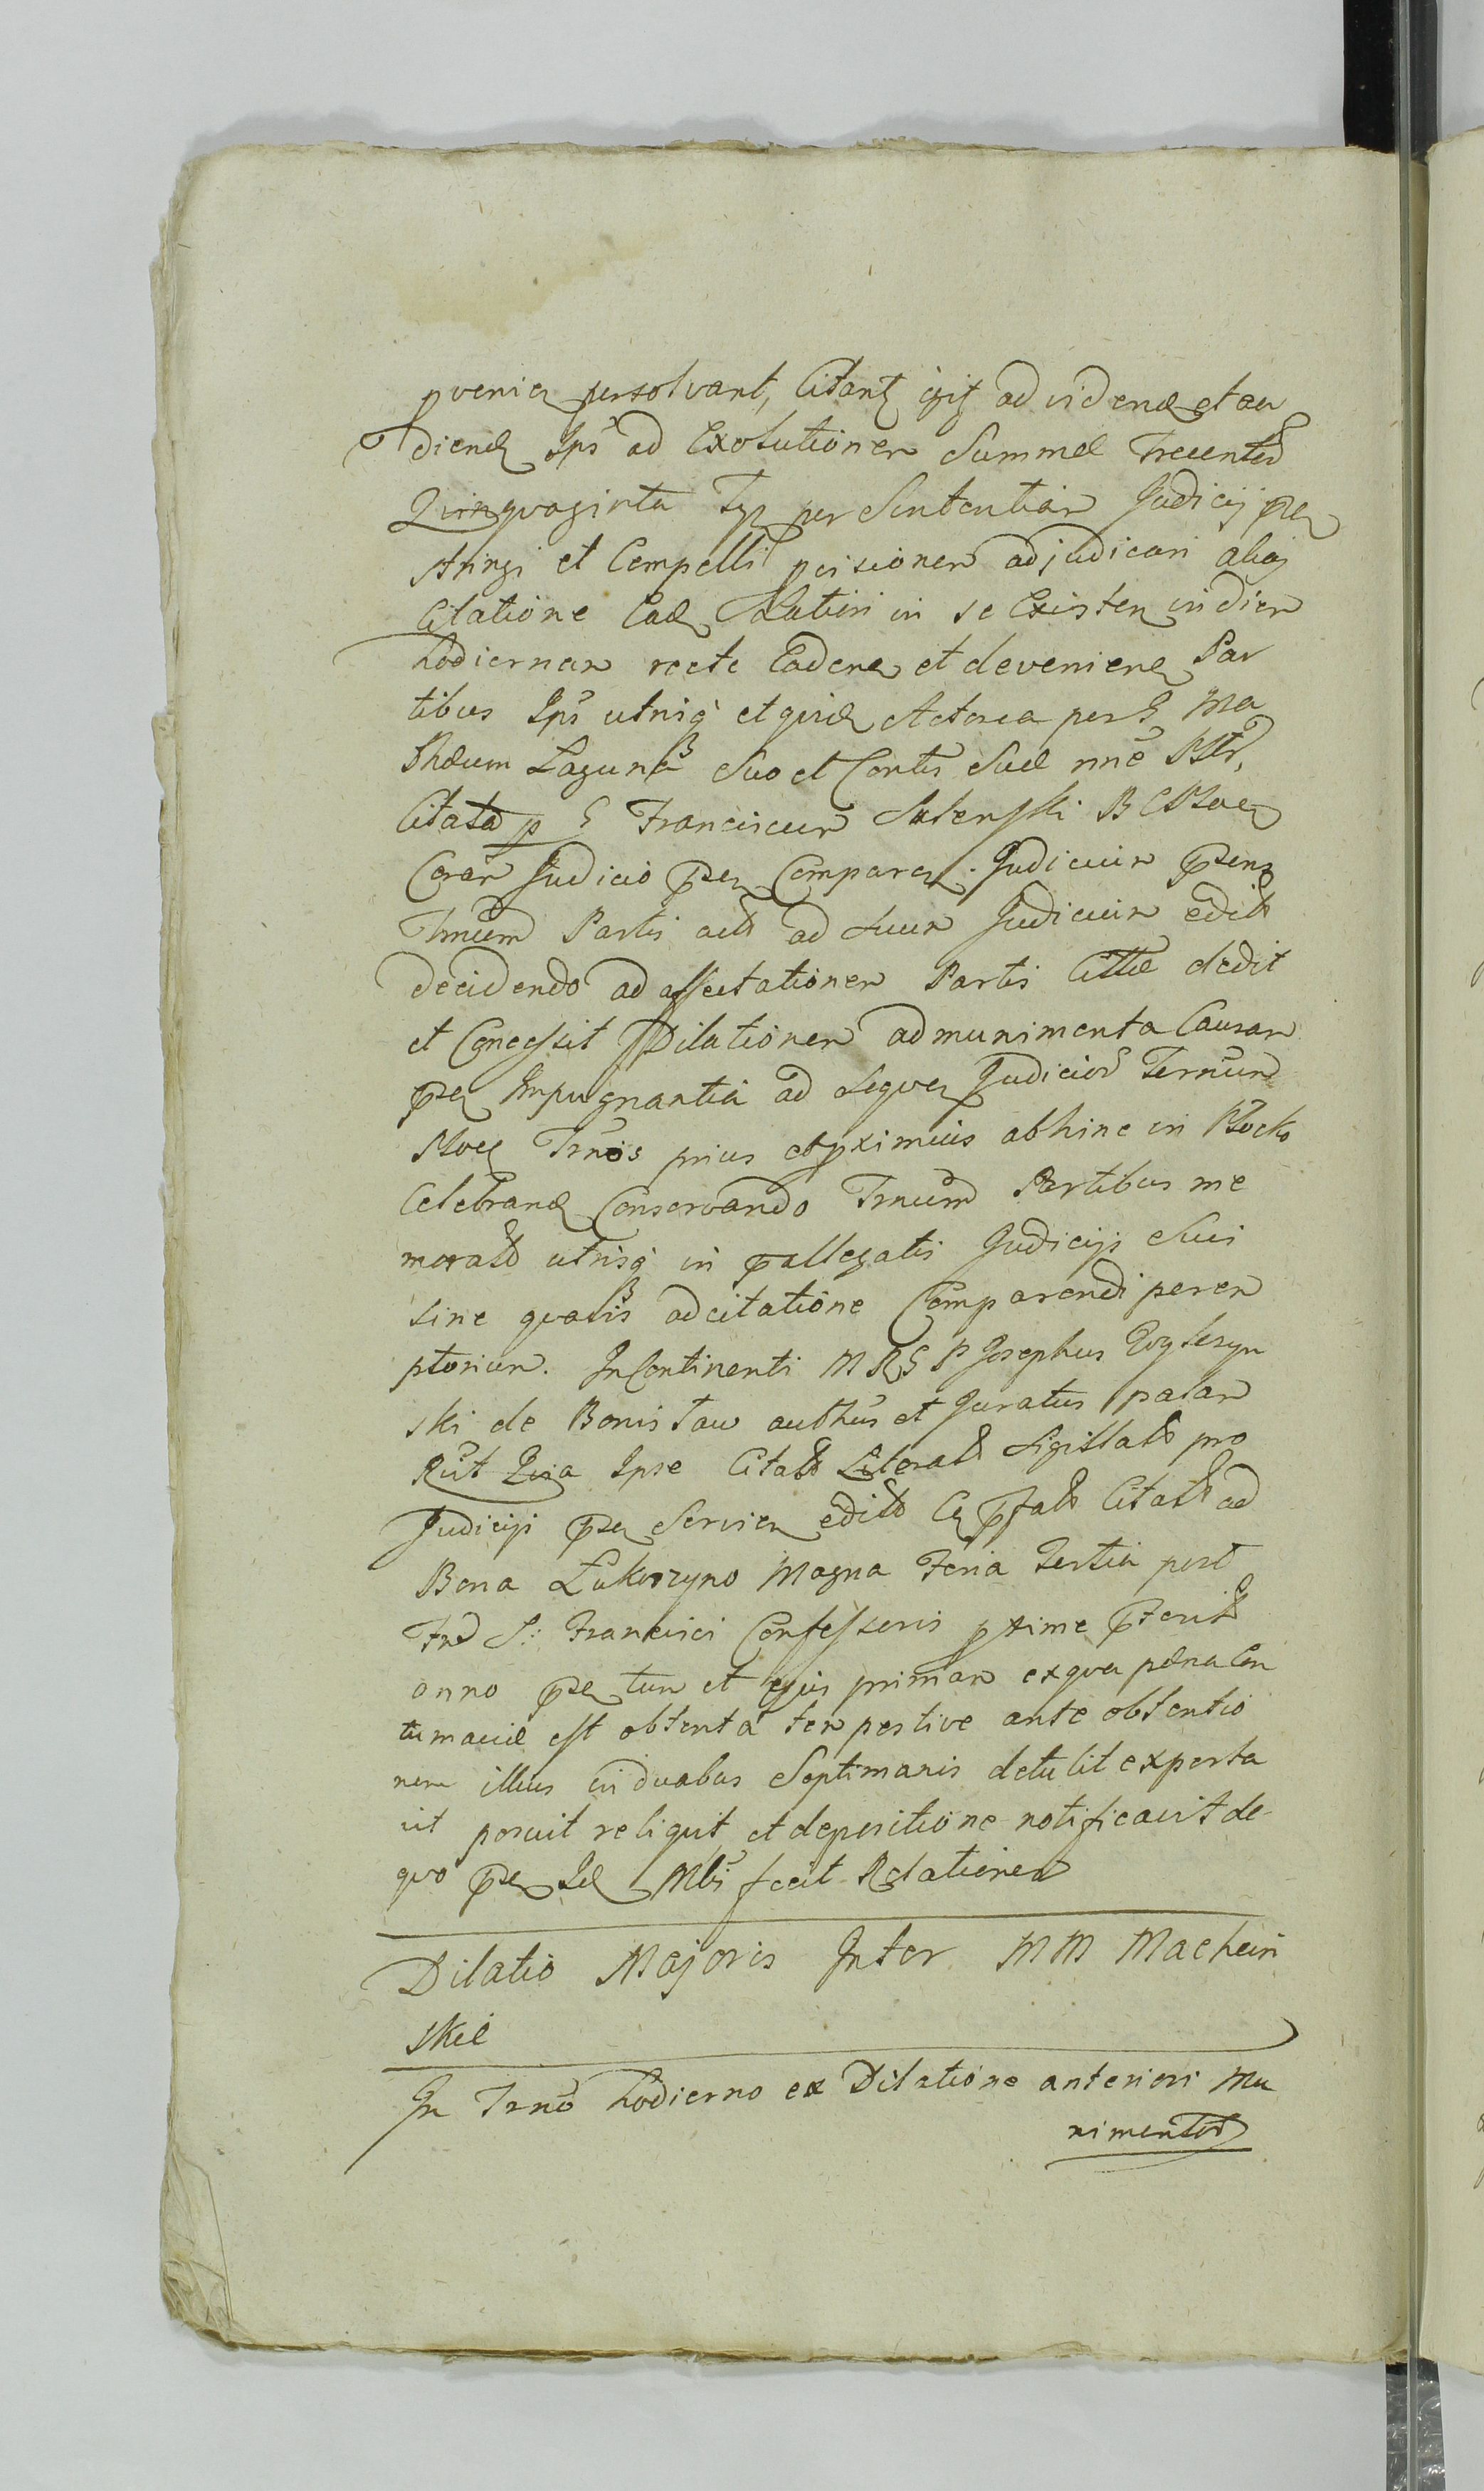 pvenien persolvant, Citant igit ad vidend et au
diend Ips ad Exolutionem Summæ Trecentor
Quinquaginta per Sententiam Judicij pn
stringi et Compelli adjudicari aliaq
Citatione Ead Latiũ in se Existen in diem
hodiernam recte Caden et devenien Par
tibus Ips utrisq et quid Actorea per G Ma
thæum Łaguna Suo et Cortis Suæ nne
Citata p G Franciscum
Coram Judicio pn Comparen. Judicium psens
Trnum Partis act ad suum Judicium edit
decidendo ad affectationem Partis Cittæ dedit
et Concessit Dilationem ad munimenta Causam
pn Impugnantia ad Seqven Judicior Ternum
Ploc Trnos prius et pximius abhinc in Płocko
Celebrand Conservando Trnum Partibus me
morat utrisq in pallegatis Judicijs Sui
sine qvavis adcitatione Comparendi perem
ptorium. In Continenti MRG P Josephus
ski de Bonis Tau authus et Juratus palam
Rit Quia Ipse Citat Literat Sigillat pro
Judicijs pn Servien edit pfat Citat ad
Bona Łukoszyno Magna Feria Tertia post
Fm S: Francisci Confessoris pxime pterit
anno pn tum et ejus primam ex qva pæna Con
tumaciæ est obtenta tempestive ante obtentio
nem illius in duabus Septimanis detulit exporta
vit posuit reliquit et depositione notificavit de
qvo pn Id Mlis fecit Relationem
Dilatio Majoris Inter MM Machcin
skie
In Trno hodierno ex Dilatione anteriori Mu
nimentor